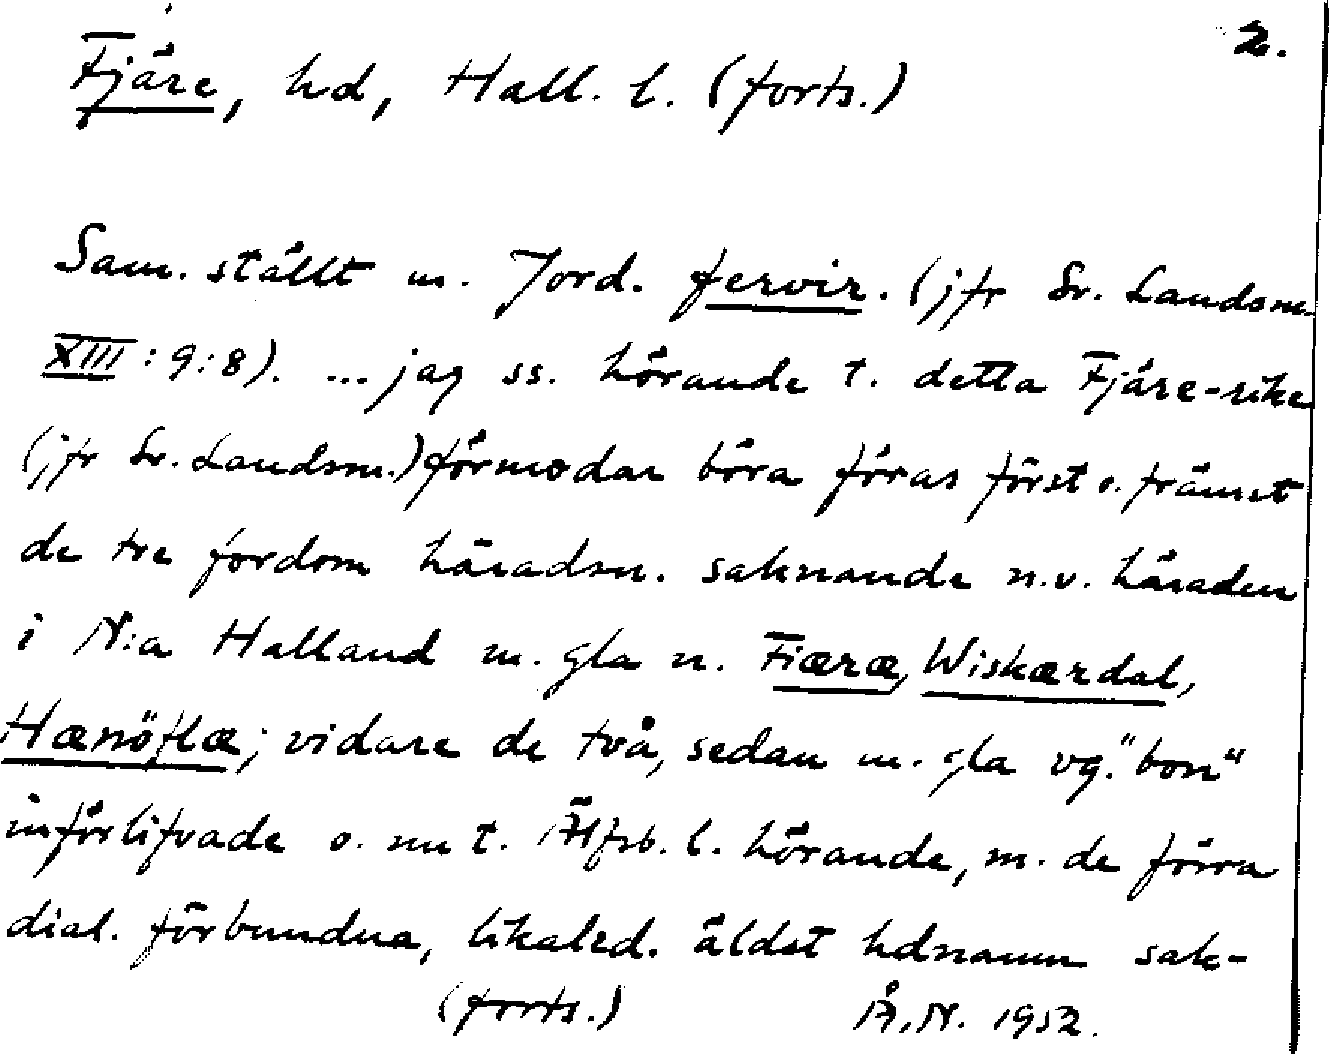 2.
Fjäre, hd, Hall. l. (forts.)
Sam. ställt m. Jord. fervir. (jfr Sv. Landsm.
XIII : 9:8). ... jag ss. hörande t. detta Fjäre-rike
(jfr Sv. Landsm.) förmodar böra föras först o. främst
de tre fordom häradsn. saknande n.v. häraden
i N:a Halland m. gla n. Fiæræ, Wiskærdal,
Hænöflæ; vidare de två, sedan m. gla vg. "bon"
införlifvade o. nu t. Älfsb. l. hörande, m. de förra
dial. förbundna, likaled. äldst hdnamn sak-
(forts.) Å.N. 1952.